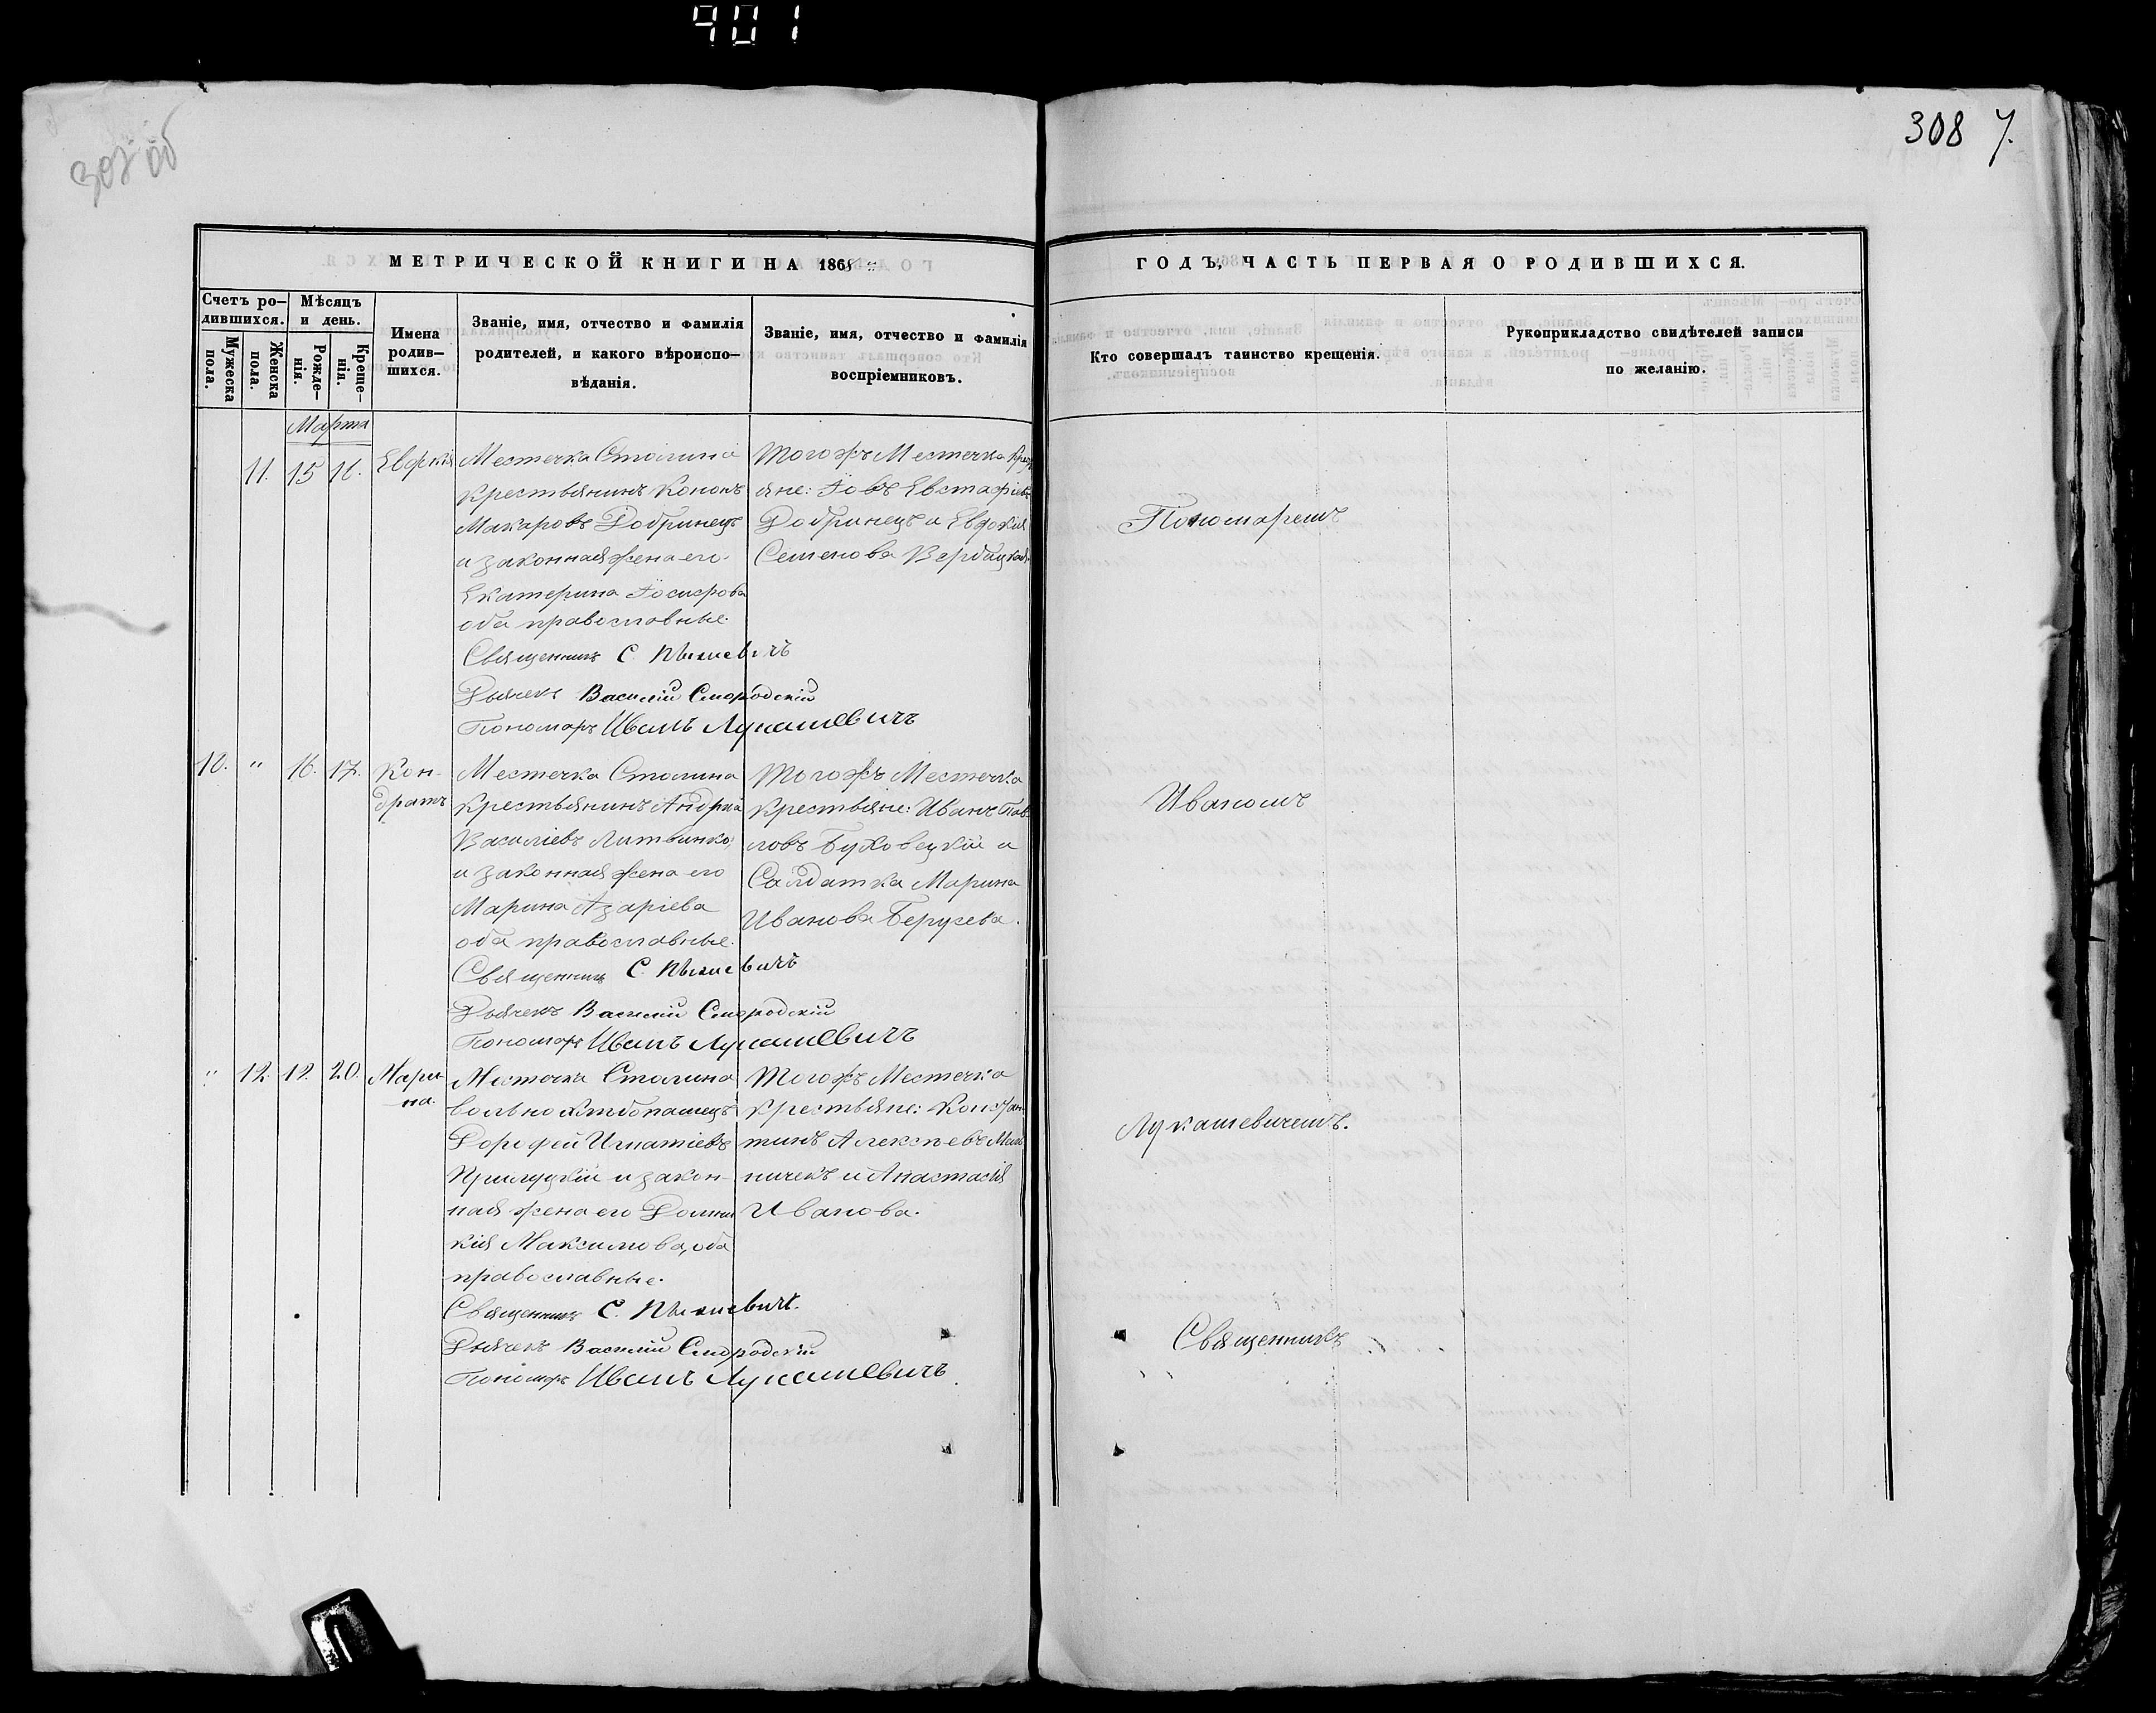 901
307 об
308 7.
МЕТРИЧЕСКОЙ КНИГИ НА 1868
ГОДЪ, ЧАСТЬ ПЕРВАЯ О РОДИВШИХСЯ.
Счетъ ро-
дившихся.
Мужеска
пола.
Женска
пола.
Мѣсяцъ
и день.
Рожде-
нія.
Креще-
нія.
Имена
родив-
шихся.
Званіе, имя, отчество и фамилія
родителей, и какого вѣроиспо-
вѣданія.
Званіе, имя, отчество и фамилія
воспріемниковъ.
Кто совершалъ таинство крещенія.
Рукоприкладство свидѣтелей записи
по желанію.
Марта
11. 15 16.
Местечка Столина
крестьянинъ Кононъ
Макаровъ Добринецъ
и законная жена его
Екатерина
оба православные.
Священникъ С.
Дьячекъ Василій Смородскій
Пономарь Иванъ Лукашевичъ
Тогожъ Местечка
яне: Іовъ Евстафіевъ
Добринецъ и Евдокія
Семенова
Пономаремъ
10. " 16. 17.
Кон-
дратъ
Местечка Столина
крестьянинъ Андрей
Василіевъ Литвинко
и законная жена его
Марина Азаріева
оба православные.
Священникъ С.
Дьячекъ Василій Смородскій
Пономарь Иванъ Лукашевичъ
Тогожъ Местечка
крестьяне: Иванъ Пав-
ловъ Буховецкій и
Салдатка Марина
Иванова
Иваномъ
" 12. 20.
Мари-
на.
Местечка Столина
вольно хлебопашецъ
Дорофей Игнатіевъ
Прилуцкій и закон-
ная жена его Домни-
кія Максимова, оба
православные.
Священникъ С.
Дьячекъ Василій Смородскій
Пономарь Иванъ Лукашевичъ
Тогожъ Местечка
крестьяне: Констан-
тинъ Алексѣевъ
и Анастасія
Иванова.
Лукашевичемъ.
Священникъ